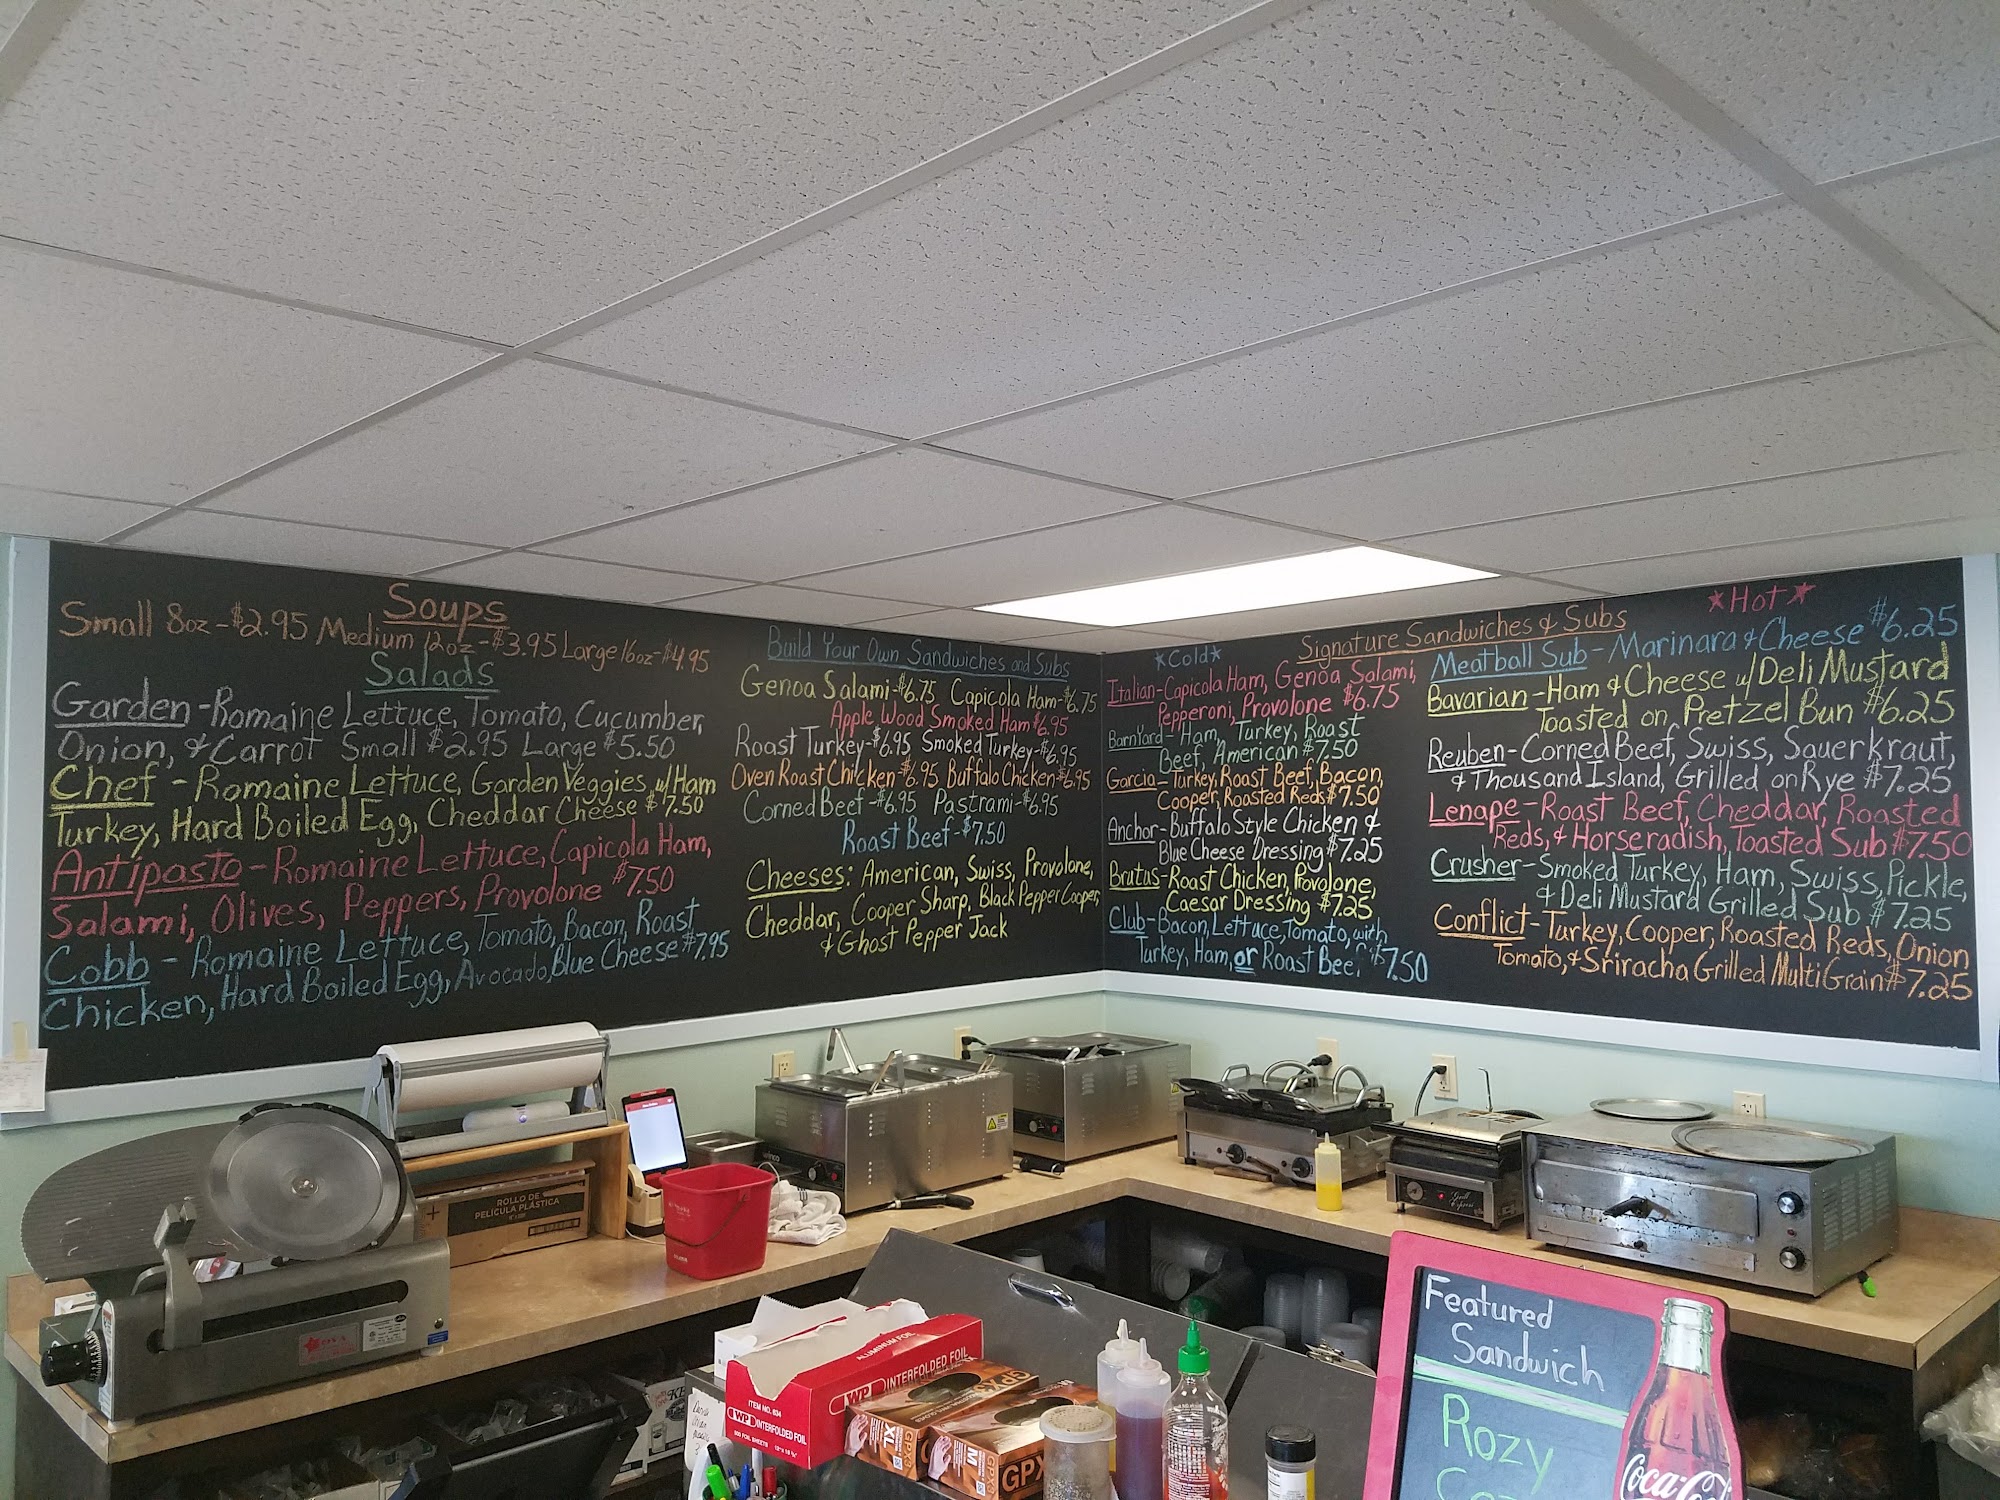 Soups
Small 8oz-$2.95 Medium 12oz-$3.95 Large 16oz-$4.95
Salads
Garden-Romaine Lettuce, Tomato, Cucumber,
Onion, & Carrot Small $2.95 Large $5.50
Chef - Romaine Lettuce, Garden Veggies, w/ Ham
Turkey, Hard Boiled Egg, Cheddar Cheese $7.50
Antipasto - Romaine Lettuce, Capicola Ham,
Salami, Olives, Peppers, Provolone $7.50
Cobb - Romaine Lettuce, Tomato, Bacon, Roast
Chicken, Hard Boiled Egg, Avocado, Blue Cheese $7.95
Build Your Own Sandwiches and Subs
Genoa Salami-$6.75 Capicola Ham-$6.75
Apple Wood Smoked Ham $6.95
Roast Turkey-$6.95 Smoked Turkey-$6.95
Oven Roast Chicken-$6.95 Buffalo Chicken-$6.95
Corned Beef-$6.95 Pastrami-$6.95
Roast Beef-$7.50
Cheeses: American, Swiss, Provolone,
Cheddar, Cooper Sharp, Black Pepper Cooper,
& Ghost Pepper Jack
Signature Sandwiches & Subs
*Cold*
Italian-Capicola Ham, Genoa Salami,
Pepperoni, Provolone $6.75
BarnYard-Ham, Turkey, Roast
Beef, American $7.50
Garcia-Turkey, Roast Beef, Bacon,
Cooper, Roasted Reds $7.50
Anchor-Buffalo Style Chicken &
Blue Cheese Dressing $7.25
Brutus-Roast Chicken, Provolone,
Caesar Dressing $7.25
Club-Bacon, Lettuce, Tomato, with
Turkey, Ham, or Roast Beef $7.50
*Hot*
Meatball Sub-Marinara & Cheese $6.25
Bavarian-Ham & Cheese w/ Deli Mustard
Toasted on Pretzel Bun $6.25
Reuben-Corned Beef, Swiss, Sauerkraut,
& Thousand Island, Grilled on Rye $7.25
Lenape-Roast Beef, Cheddar, Roasted
Reds, & Horseradish, Toasted Sub $7.50
Crusher-Smoked Turkey, Ham, Swiss, Pickle,
& Deli Mustard Grilled Sub $7.25
Conflict-Turkey, Cooper, Roasted Reds, Onion
Tomato, & Sriracha Grilled MultiGrain $7.25
ROLLO DE
PELÍCULA PLÁSTICA
winco
Grill
Express
ALUMINUM FOIL
WP INTERFOLDED FOIL
ITEM NO. 634
WP INTERFOLDED FOIL
500 FOIL SHEETS 12" X 10 3/4"
GPX3
XL
M
GPX
Featured
Sandwich
Rozy
Coca-Cola